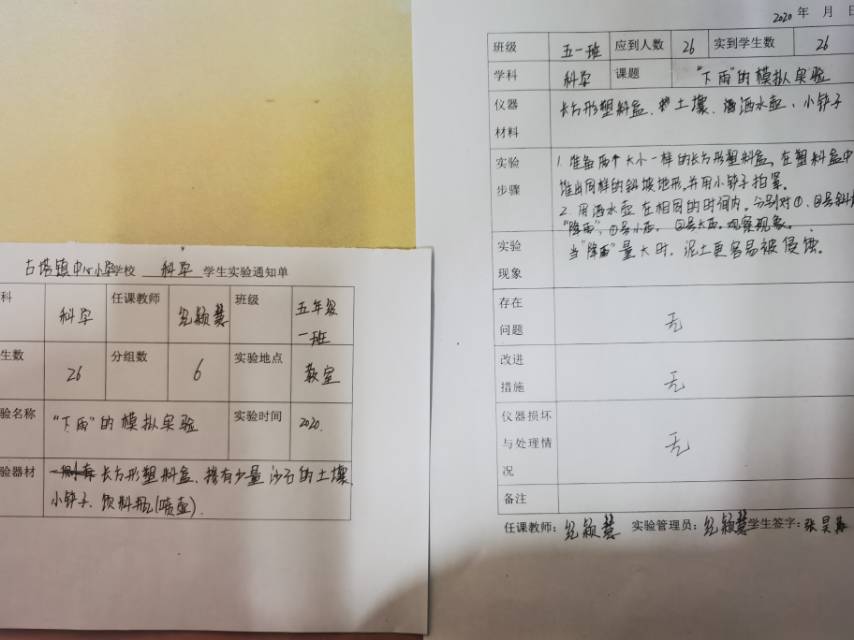 古塔镇中心小学学校 科学 学生实验通知单
科 科学 任课教师 纪颖慧 班级 五年级一班
生数 26 分组数 6 实验地点 教室
验名称 "下雨"的模拟实验 实验时间 2020.
验器材 长方形塑料盒、掺有少量沙石的土壤
小铲子、饮料瓶(喷壶).
2020年 月 日
班级 五一班 应到人数 26 实到学生数 26
学科 科学 课题 "下雨"的模拟实验
仪器材料 长方形塑料盒、土壤、洒水壶、小铲子
实验步骤 1.准备两个大小一样的长方形塑料盒,在塑料盒中
堆出同样的斜坡地形,并用小铲子拍紧。
2.用洒水壶在相同的时间内,分别对①、②号斜
"降雨",①号小雨,②号大雨,观察现象。
实验现象 当"降雨"量大时,泥土更容易被侵蚀。
存在问题 无
改进措施 无
仪器损坏与处理情况 无
备注
任课教师:纪颖慧 实验管理员:纪颖慧 学生签字:张昊